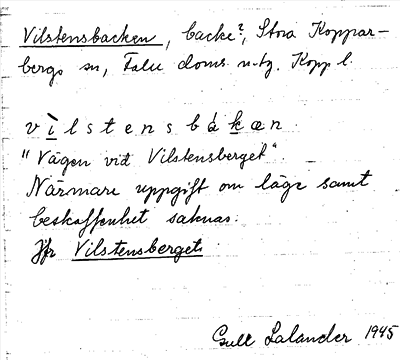 Vilstensbacken, backe?, Stora Koppar-
bergs sn, Falu doms. n. tg. Kopp l.
vìlstensbákæn
"Vägen vid Vilstensberget".
Närmare uppgift om läge samt
beskaffenhet saknas.
Jfr Vilstensberget
Gull Lalander 1945